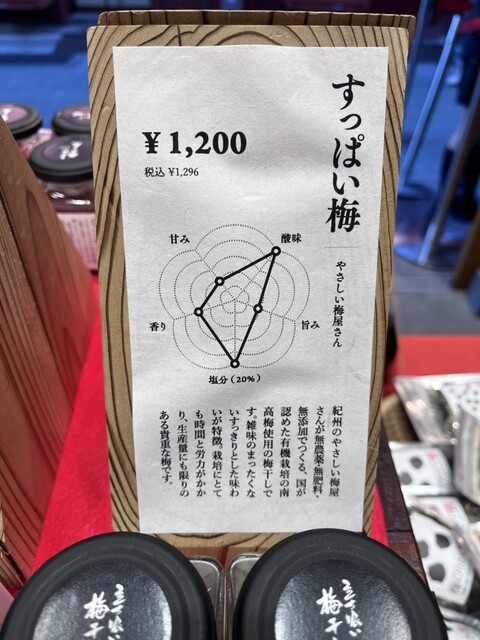 すっぱい梅
やさしい梅屋さん
¥1,200
税込 ¥1,296
甘み
酸味
香り
旨み
塩分(20%)
紀州のやさしい梅屋
さんが無農薬・無肥料・
無添加でつくる、国が
認めた有機栽培の南
高梅使用の梅干しで
す。雑味のまったくな
いすっきりとした味わ
いが特徴。栽培にとて
も時間と労力がかか
り、生産量にも限りの
ある貴重な梅です。
立ち喰い
梅干し
立ち喰い
梅干